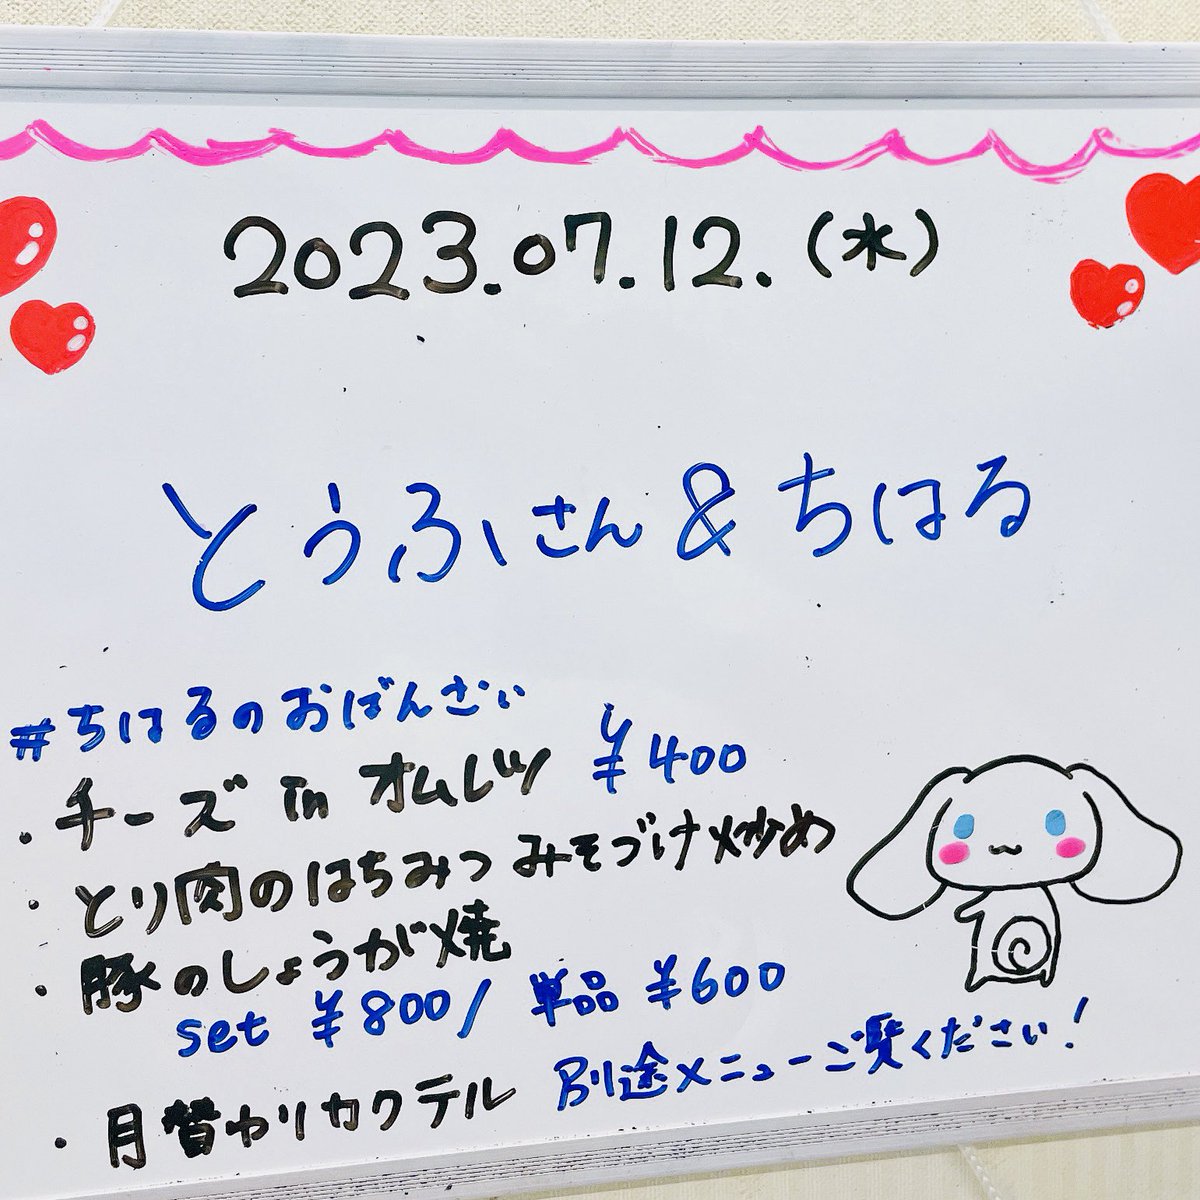 2023.07.12.(水)
とうふさん&ちはる
#ちはるのおばんざい
・チーズ in オムレツ ¥400
・とり肉のはちみつみそづけ炒め
・豚のしょうが焼
set ¥800/ 単品 ¥600
・月替わりカクテル 別途メニューご覧ください!